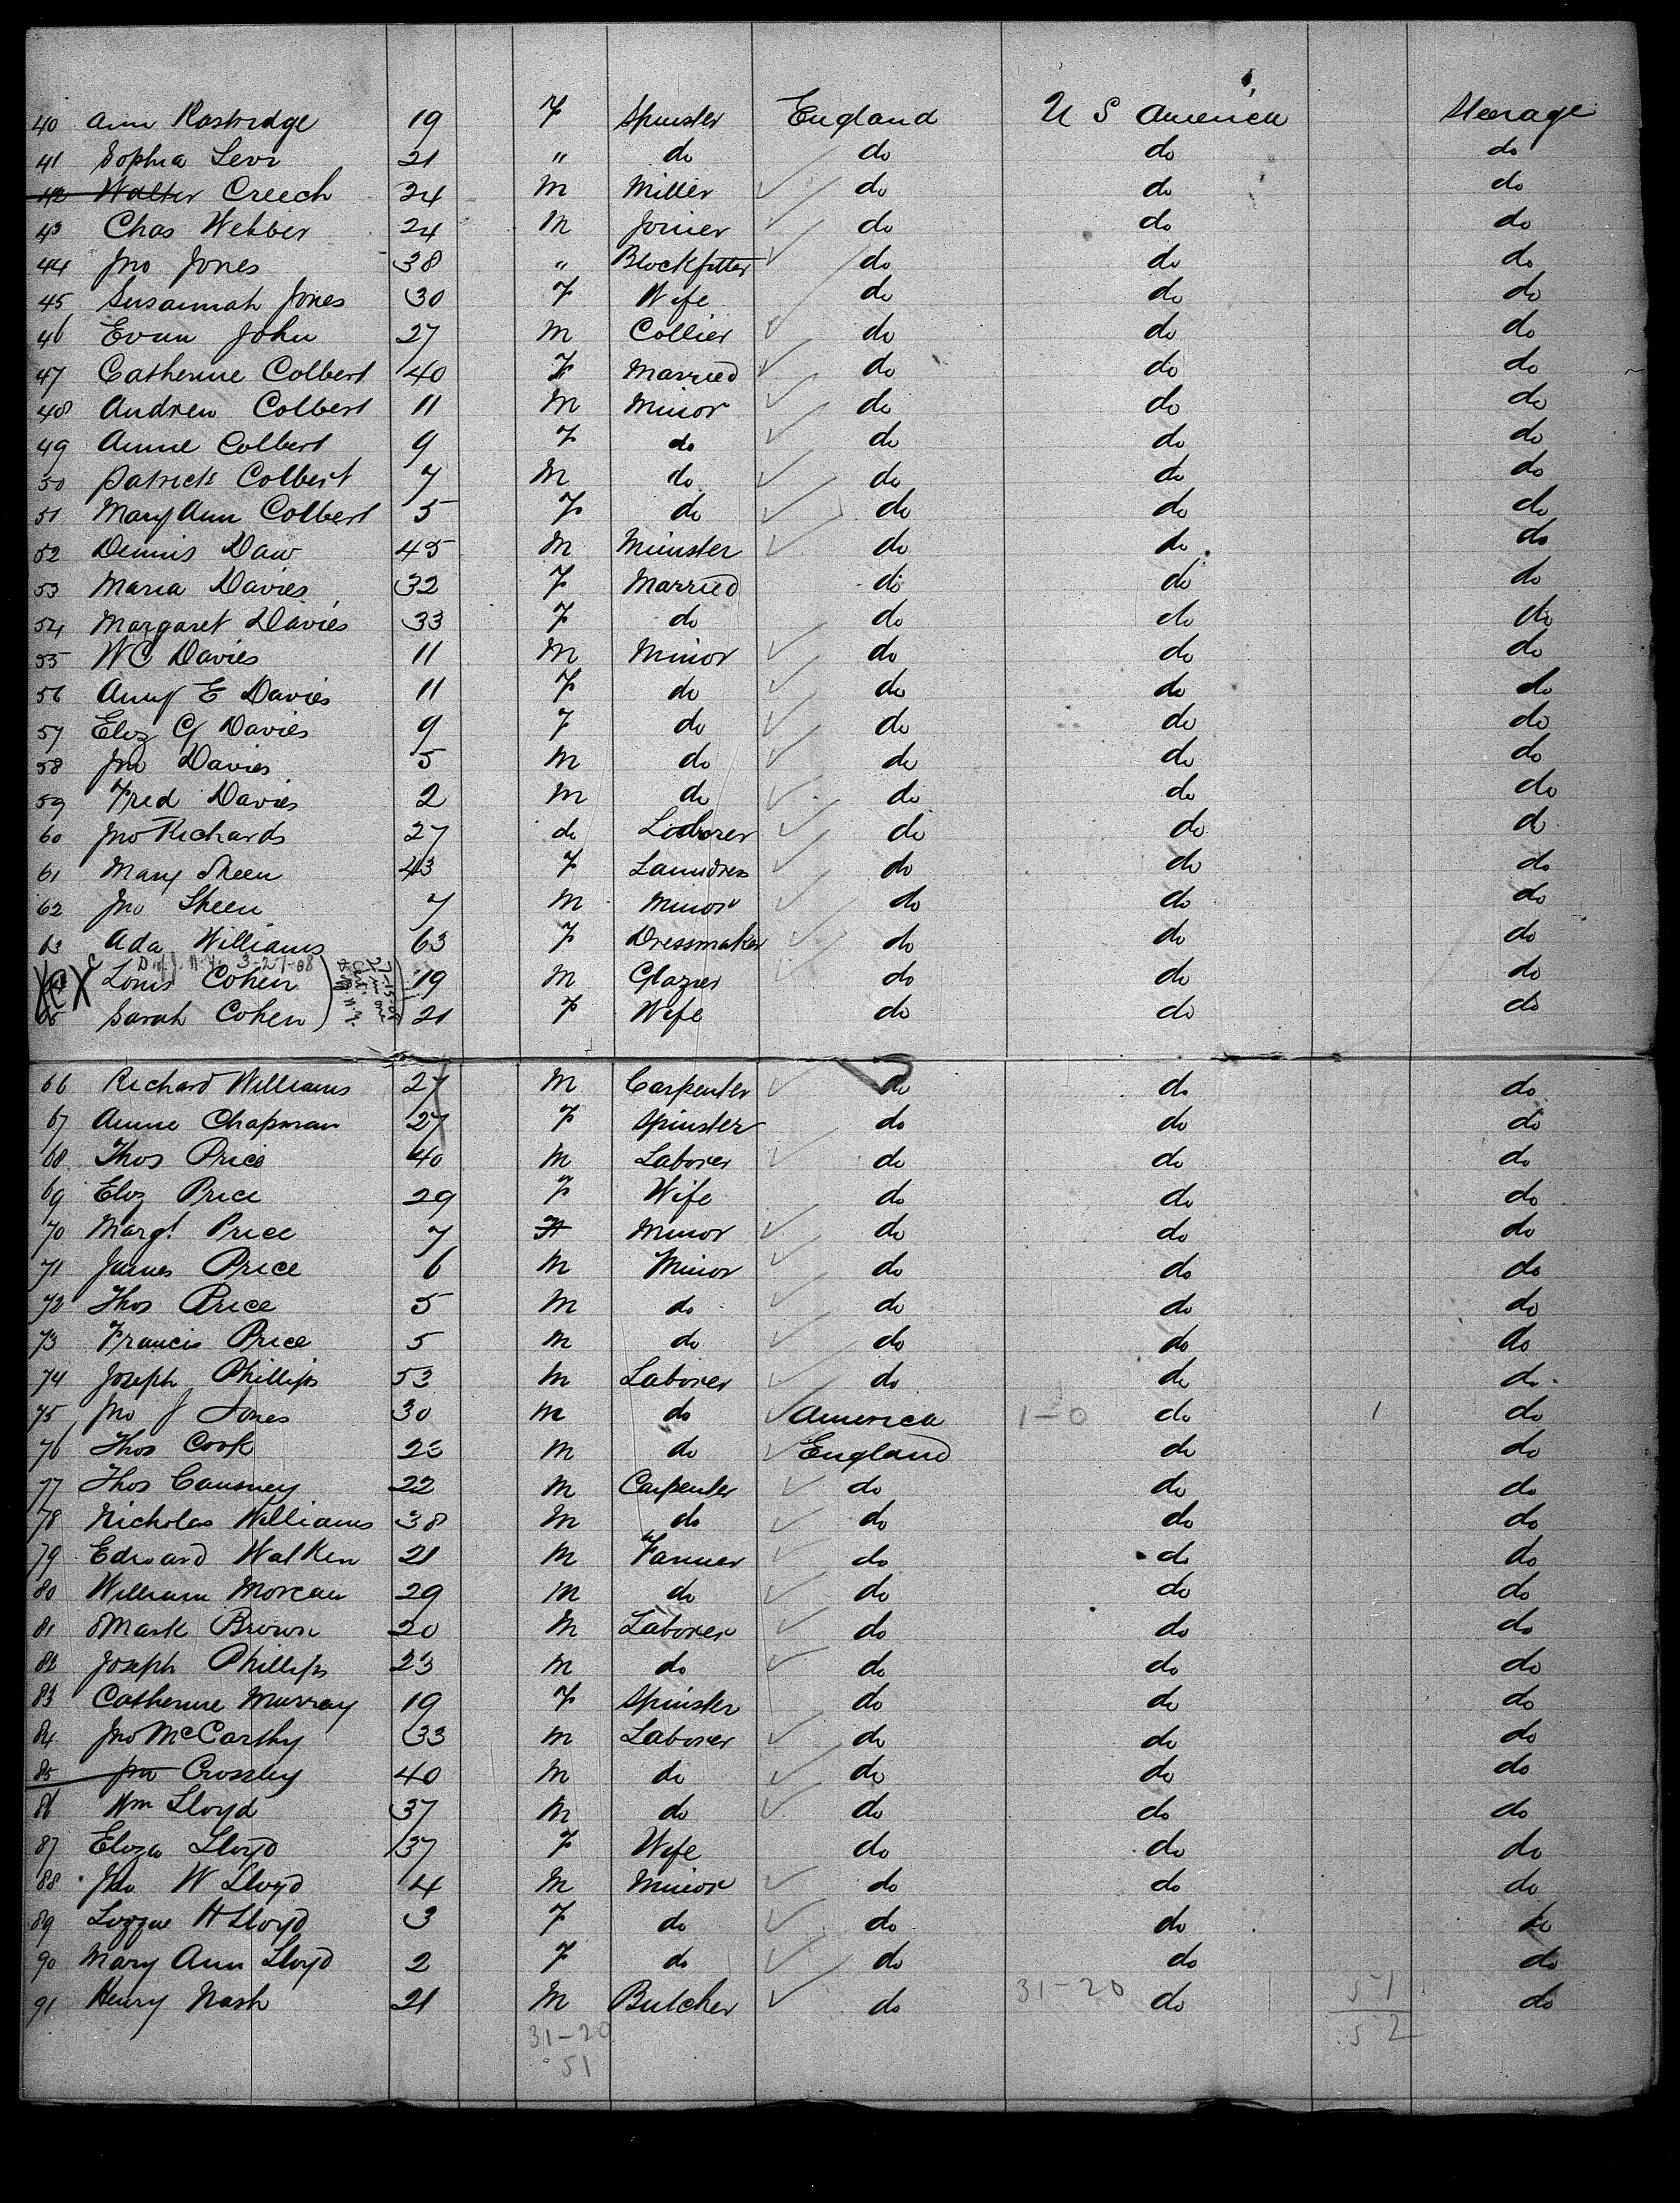 40 Ann Rastridge 19 F Spinster England U S America Steerage
41 Sophia Levi 21 " do do do do
42 Walter Creech 34 M Miller do do do
43 Chas Webber 24 M Joiner do do do
44 Jno Jones 38 " Blockfitter do do do
45 Susannah Jones 30 F Wife do do do
46 Evan John 27 M Collier do do do
47 Catherine Colbert 40 F Married do do do
48 Andrew Colbert 11 M Minor do do do
49 Annie Colbert 9 F do do do do
50 Patrick Colbert 7 M do do do do
51 Mary Ann Colbert 5 F do do do do
52 Dennis Daw 45 M Minister do do do
53 Maria Davies 32 F Married do do do
54 Margaret Davies 33 F do do do do
55 WC Davies 11 M Minor do do do
56 Amy E Davies 11 F do do do do
57 Eliz G Davies 9 F do do do do
58 Jno Davies 5 M do do do do
59 Fred Davies 2 M do do do do
60 Jno Richards 27 do Laborer do do do
61 Mary Sheen 43 F Laundress do do do
62 Jno Sheen 7 M Minor do do do
63 Ada Williams 63 F Dressmaker do do do
N.Y. 3-27-08
Louis Cohen 19 M Glazier do do do
65 Sarah Cohen 21 F Wife do do do
66 Richard Williams 27 M Carpenter do do do
67 Annie Chapman 27 F Spinster do do do
68 Thos Price 40 M Laborer do do do
69 Eliz Price 29 F Wife do do do
70 Margt Price 7 F Minor do do do
71 James Price 6 M Minor do do do
72 Thos Price 5 M do do do do
73 Francis Price 5 M do do do do
74 Joseph Phillips 53 M Laborer do do do
75 Jno J Jones 30 M do America 1-0 do 1 do
76 Thos Cook 23 M do England do do
77 Thos Causney 22 M Carpenter do do do
78 Nicholas Williams 38 M do do do do
79 Edward Walken 21 M Farmer do do do
80 William Morcan 29 M do do do do
81 Mark Brown 20 M Laborer do do do
82 Joseph Phillips 23 M do do do do
83 Catherine Murray 19 F Spinster do do do
84 Jno McCarthy 33 M Laborer do do do
85 Jno Crossley 40 M do do do do
86 Wm Lloyd 37 M do do do do
87 Eliza Lloyd 37 F Wife do do do
88 Jno W Lloyd 4 M Minor do do do
89 Lizzie H Lloyd 3 F do do do do
90 Mary Ann Lloyd 2 F do do do do
91 Henry Nash 21 M Butcher do 31-20 do 51 do
31-20 52
51